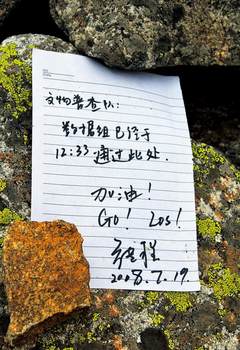 文物普查队:
数据组已经于
12:33 通过此处.
加油!
Go! Los!
2008.7.19.